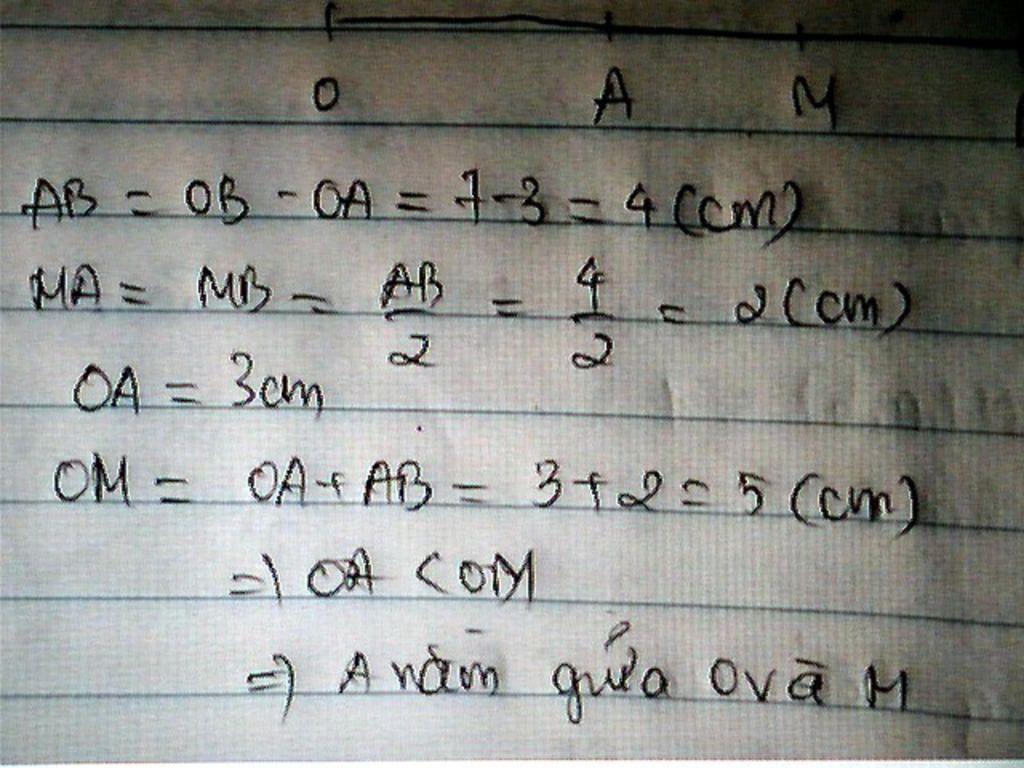 O A M
AB = OB - OA = 7-3 = 4 (cm)
MA = MB = AB/2 = 4/2 = 2 (cm)
OA = 3cm
OM = OA + AB = 3+2 = 5 (cm)
=) OA < OM
=) A nằm giữa O và M